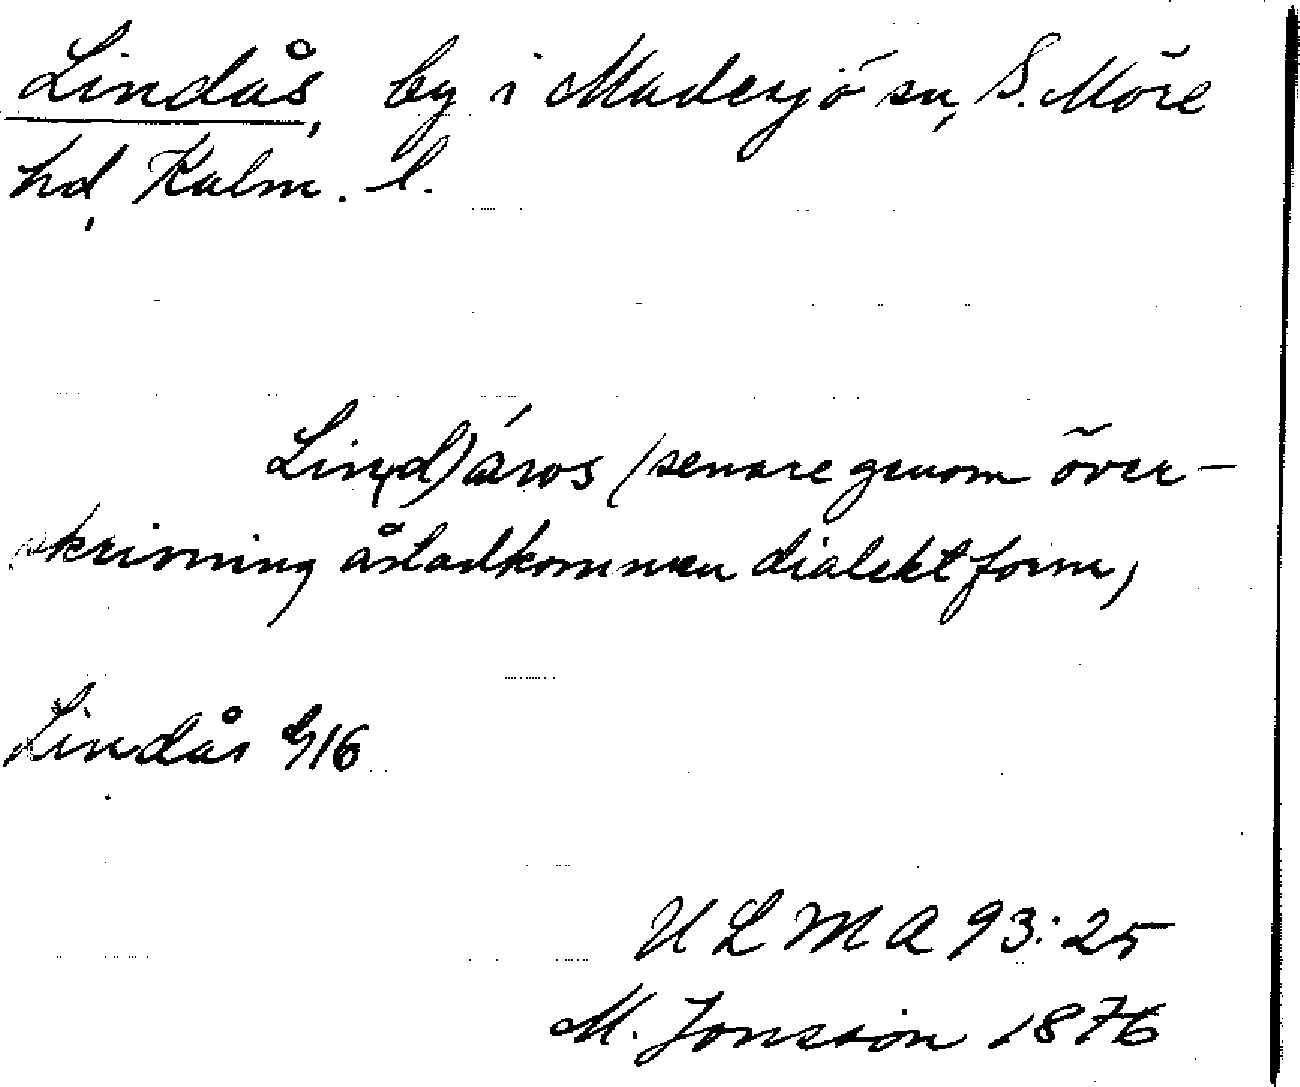 Lindås, by i Madesjö sn, S. Möre
hd, Kalm. l.
Lin(d)áros (senare genom över-
skrivning åstadkommen dialektform)
Lindås 916
ULMA 93:25
M. Jonsson 1876